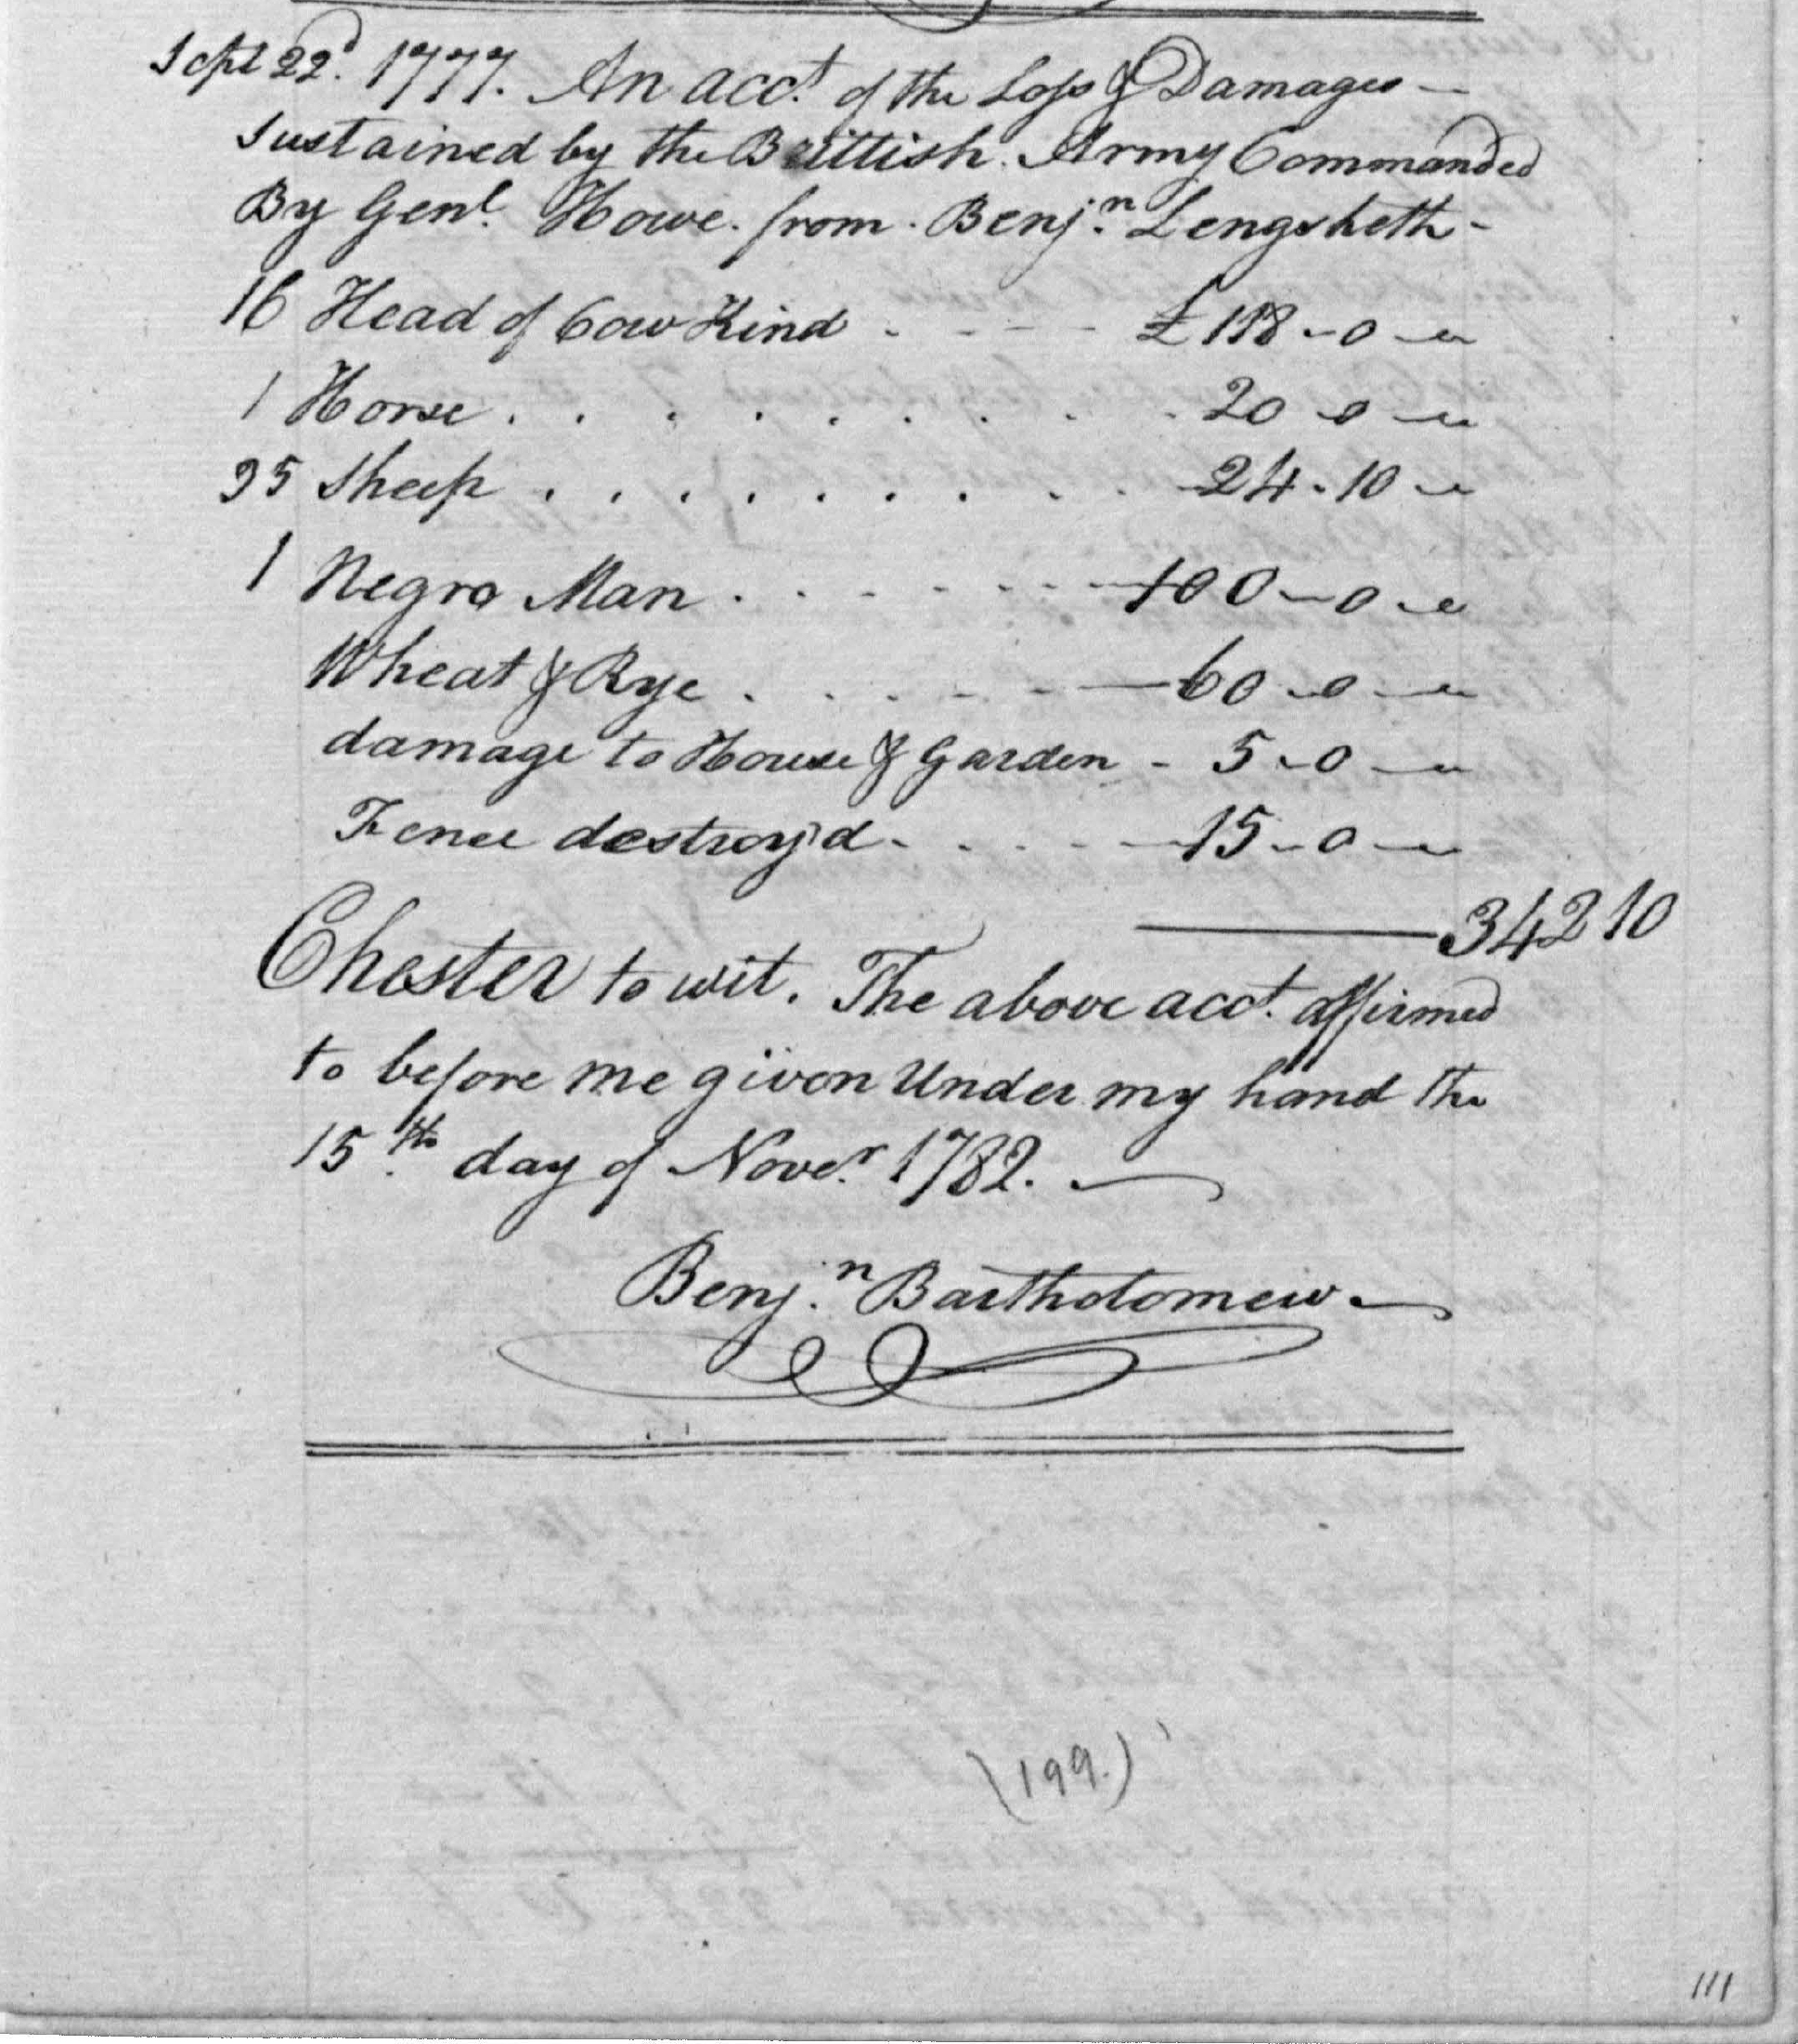 Sept 22d. 1777. An acct. of the Loss & Damages
Sustained by the Brittish Army Commanded
By Genl. Howe. from Benjn. Lengsketh -
16 Head of Cow Kind - - - - £ 118 - 0 -
1 Horse . . . . . . . . . . 20 - 0 -
35 Sheep . . . . . . . . . 24 - 10 -
1 Negro Man . . . . . . . 100 - 0 -
Wheat & Rye . . . . . . 60 - 0 -
damage to House & Garden - 5 - 0 -
Fence destroy'd - . . . . 15 - 0 -
342 10
Chester to wit. The above acct. affirmed
to before me given Under my hand the
15th. day of Novr. 1782.
Benjn. Bartholomew
(199.)
111